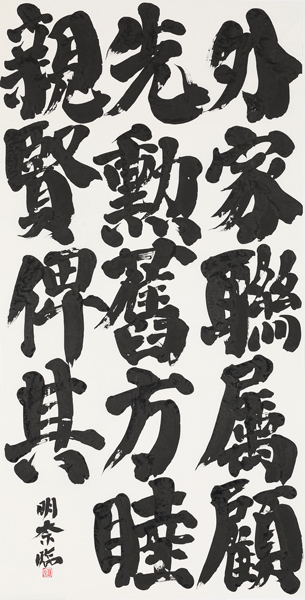 外家聯属顧
先勲舊方睦
親賢俾其
明奈臨